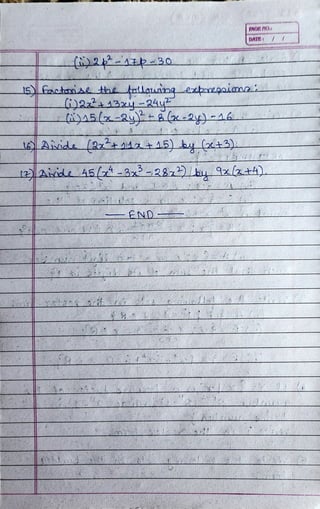 PAGE NO.:
DATE: / /
(ii) 2p² - 17p - 30
15) Factorise the following expressions:
(i) 2x² + 13xy - 24y²
(ii) 15(x - 2y)² - 8(x - 2y) - 16
16) Divide (2x² + 11x + 15) by (x+3).
17) Divide 45(x⁴ - 3x³ - 28x²) by 9x(x+4).
— END —